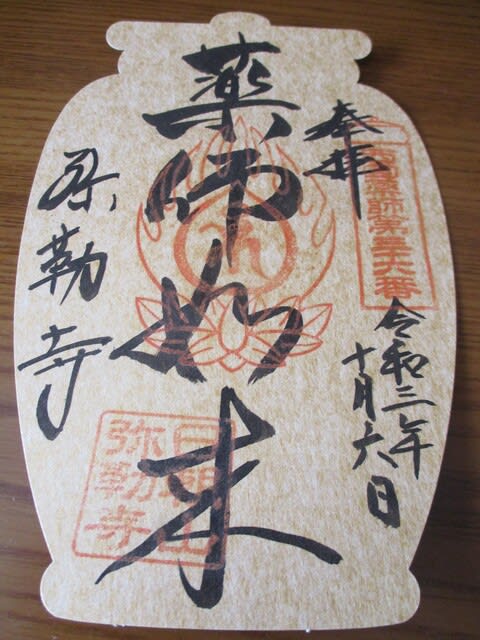 奉拝
薬師第三十六番
令和三年
十月六日
薬師如来
日朝山
弥勒寺
弥勒寺